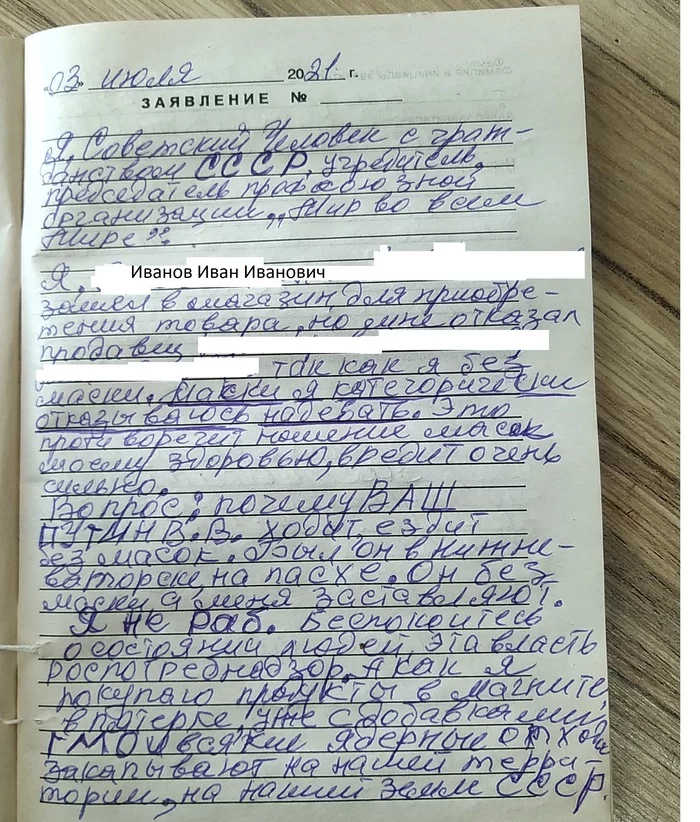 "03" июля 2021 г.
ЗАЯВЛЕНИЕ № 
Я, Советский Человек с граж-
данством СССР, учредитель,
председатель профсоюзной
организации „Мир во всем
Мире".
Я, Иванов Иван Иванович
зашел в магазин для приобре-
тения товара, но мне отказал
продавец
так как я без
маски. Маски я категорически
отказываюсь надевать. Это
противоречит ношение масок
моему здоровью, вредит очень
сильно.
Вопрос: почему ВАШ
ПУТИН В.В. ходит, ездит
без масок. Был он в Нижне-
ваторске на пасхе. Он без
маски а меня заставляют.
Я не раб. Беспокоитесь
о состоянии людей, эта власть
роспотребнадзор. А как я
покупаю продукты в Магните
в пятерке, уже с добавками
ГМО и всякие ядерные отходы
закапывают на нашей терри-
тории, на нашей земли СССР.